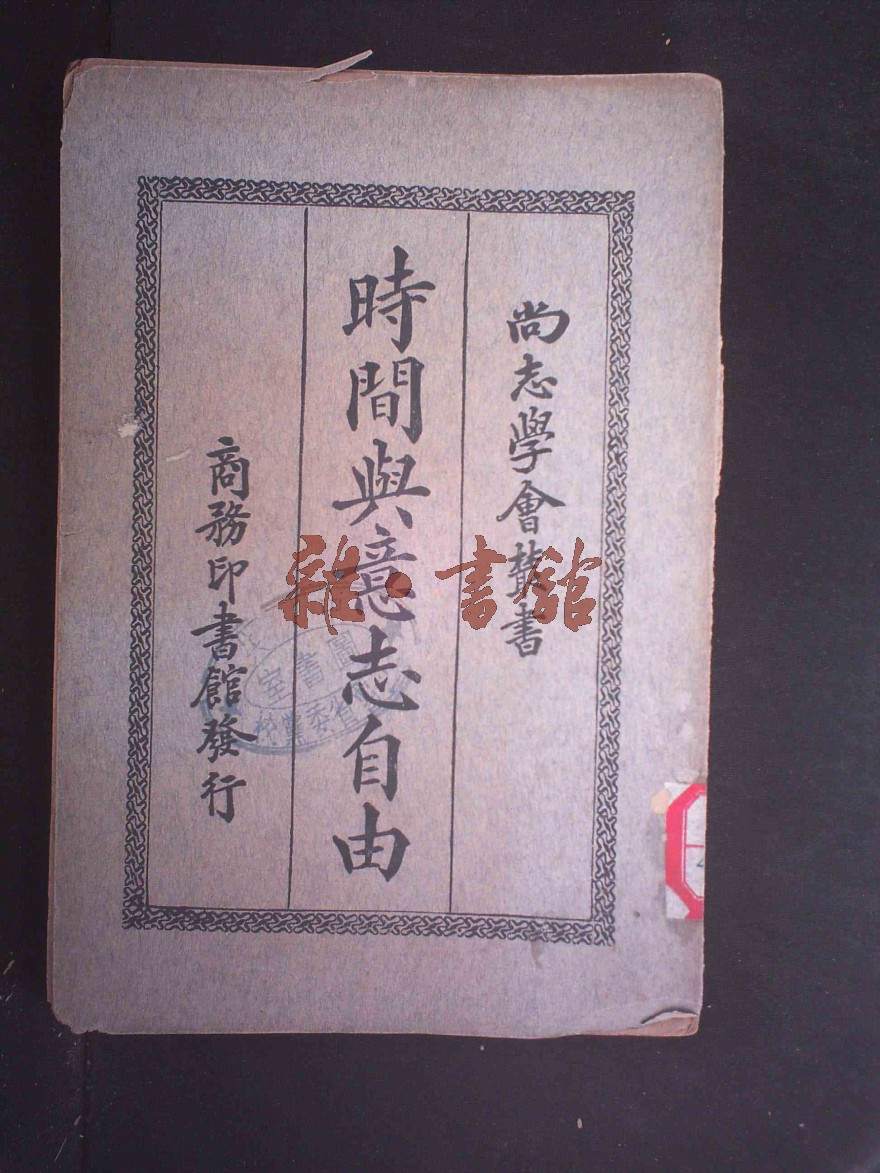 尚志學會叢書
時間與意志自由
商務印書館發行
雜·書館
圖書室
省委黨校